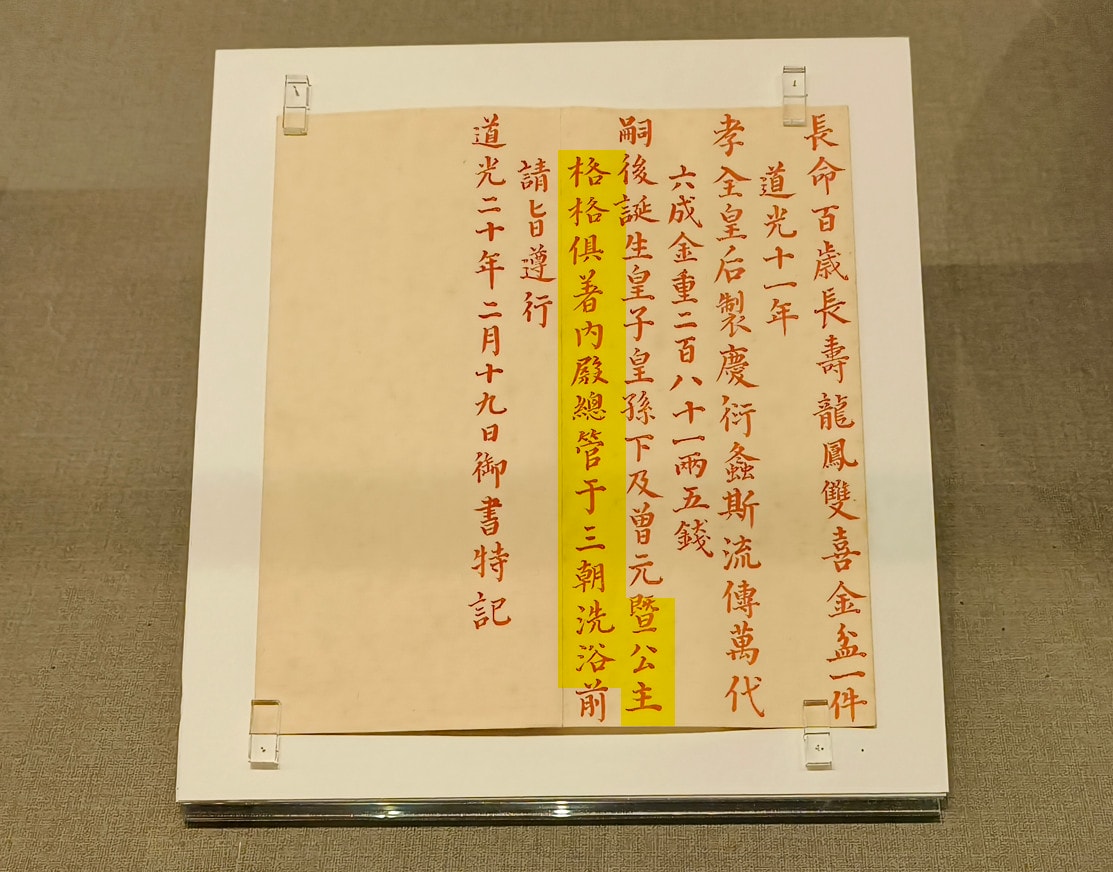 長命百歲長壽龍鳳雙喜金盆一件
道光十一年
孝全皇后製慶衍螽斯流傳萬代
六成金重二百八十一兩五錢
嗣後誕生皇子皇孫下及曾元暨公主
格格俱著內殿總管于三朝洗浴前
請旨遵行
道光二十年二月十九日御書特記